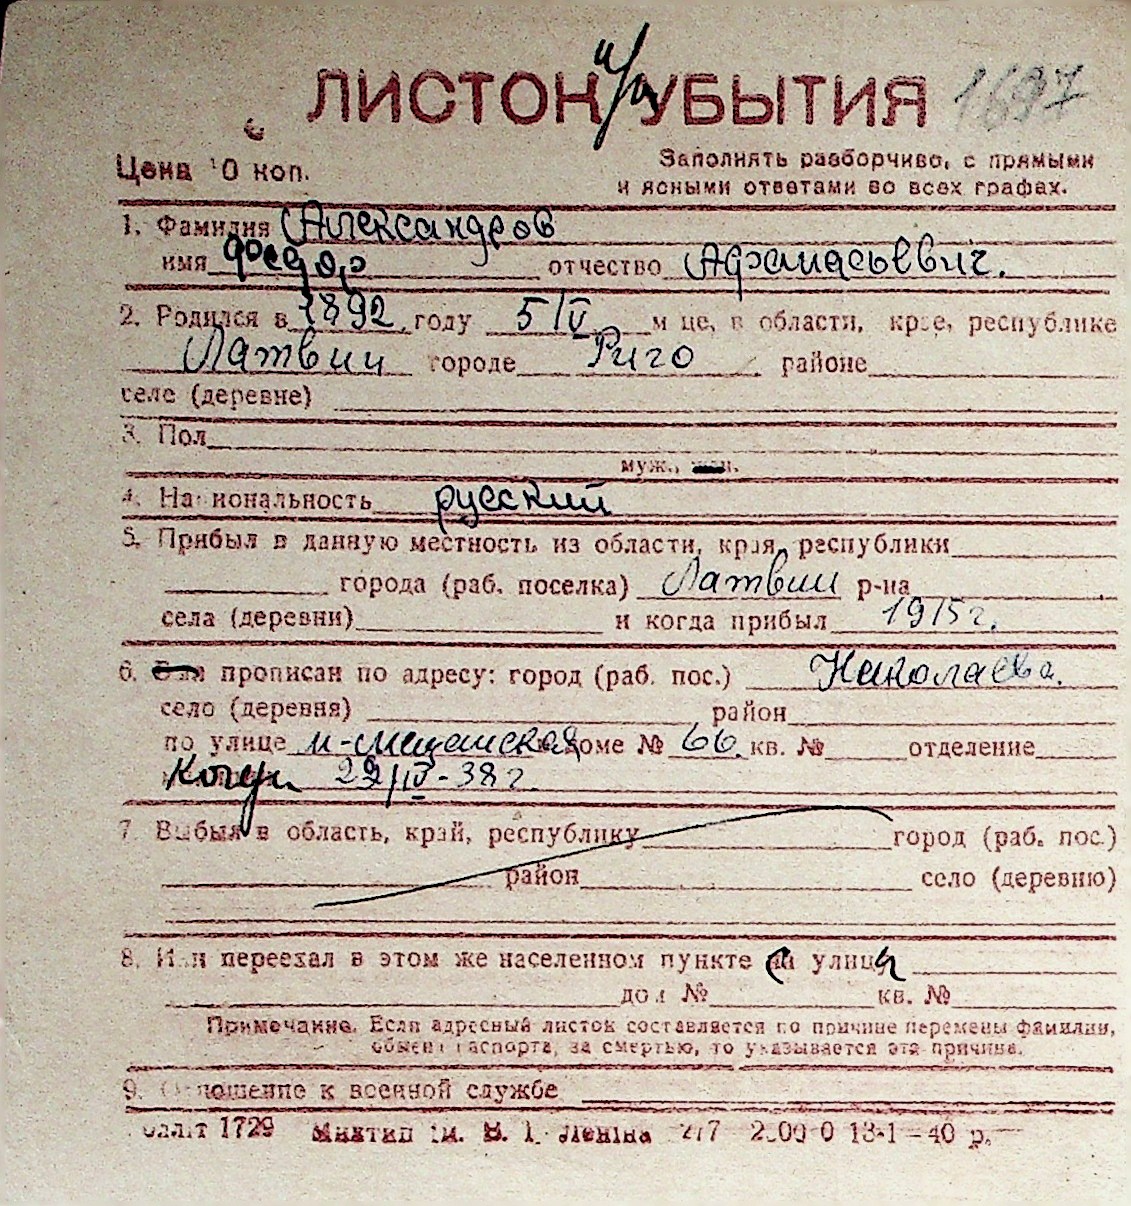 ЛИСТОК УБЫТИЯ 1697
Цена 10 коп. Заполнять разборчиво, с прямыми
и ясными ответами во всех графах.
1. Фамилия Александров
имя Федор отчество Афанасьевич.
2. Родился в 1892 году 5/IV м це, в области, крае, республике
Латвии городе Риго районе
селе (деревне)
3. Пол
муж., жен.
4. Национальность русский
5. Прибыл в данную местность из области, края, республики
города (раб. поселка) Латвии р-на
села (деревни) и когда прибыл 1915 г.
6. Был прописан по адресу: город (раб. пос.) Николаева.
село (деревня) район
по улице м-мещанская доме № 66 кв. № отделение
29/IV-38 г.
7. Выбыл в область, край, республику город (раб. пос.)
район село (деревню)
8. Или переехал в этом же населенном пункте на улицу
дом № кв. №
Примечание. Если адресный листок составляется по причине перемены фамилии,
обмена паспорта, за смертью, то указывается эта причина.
9. Отношение к военной службе
1729 им. В. І. Леніна 13-1-40 р.